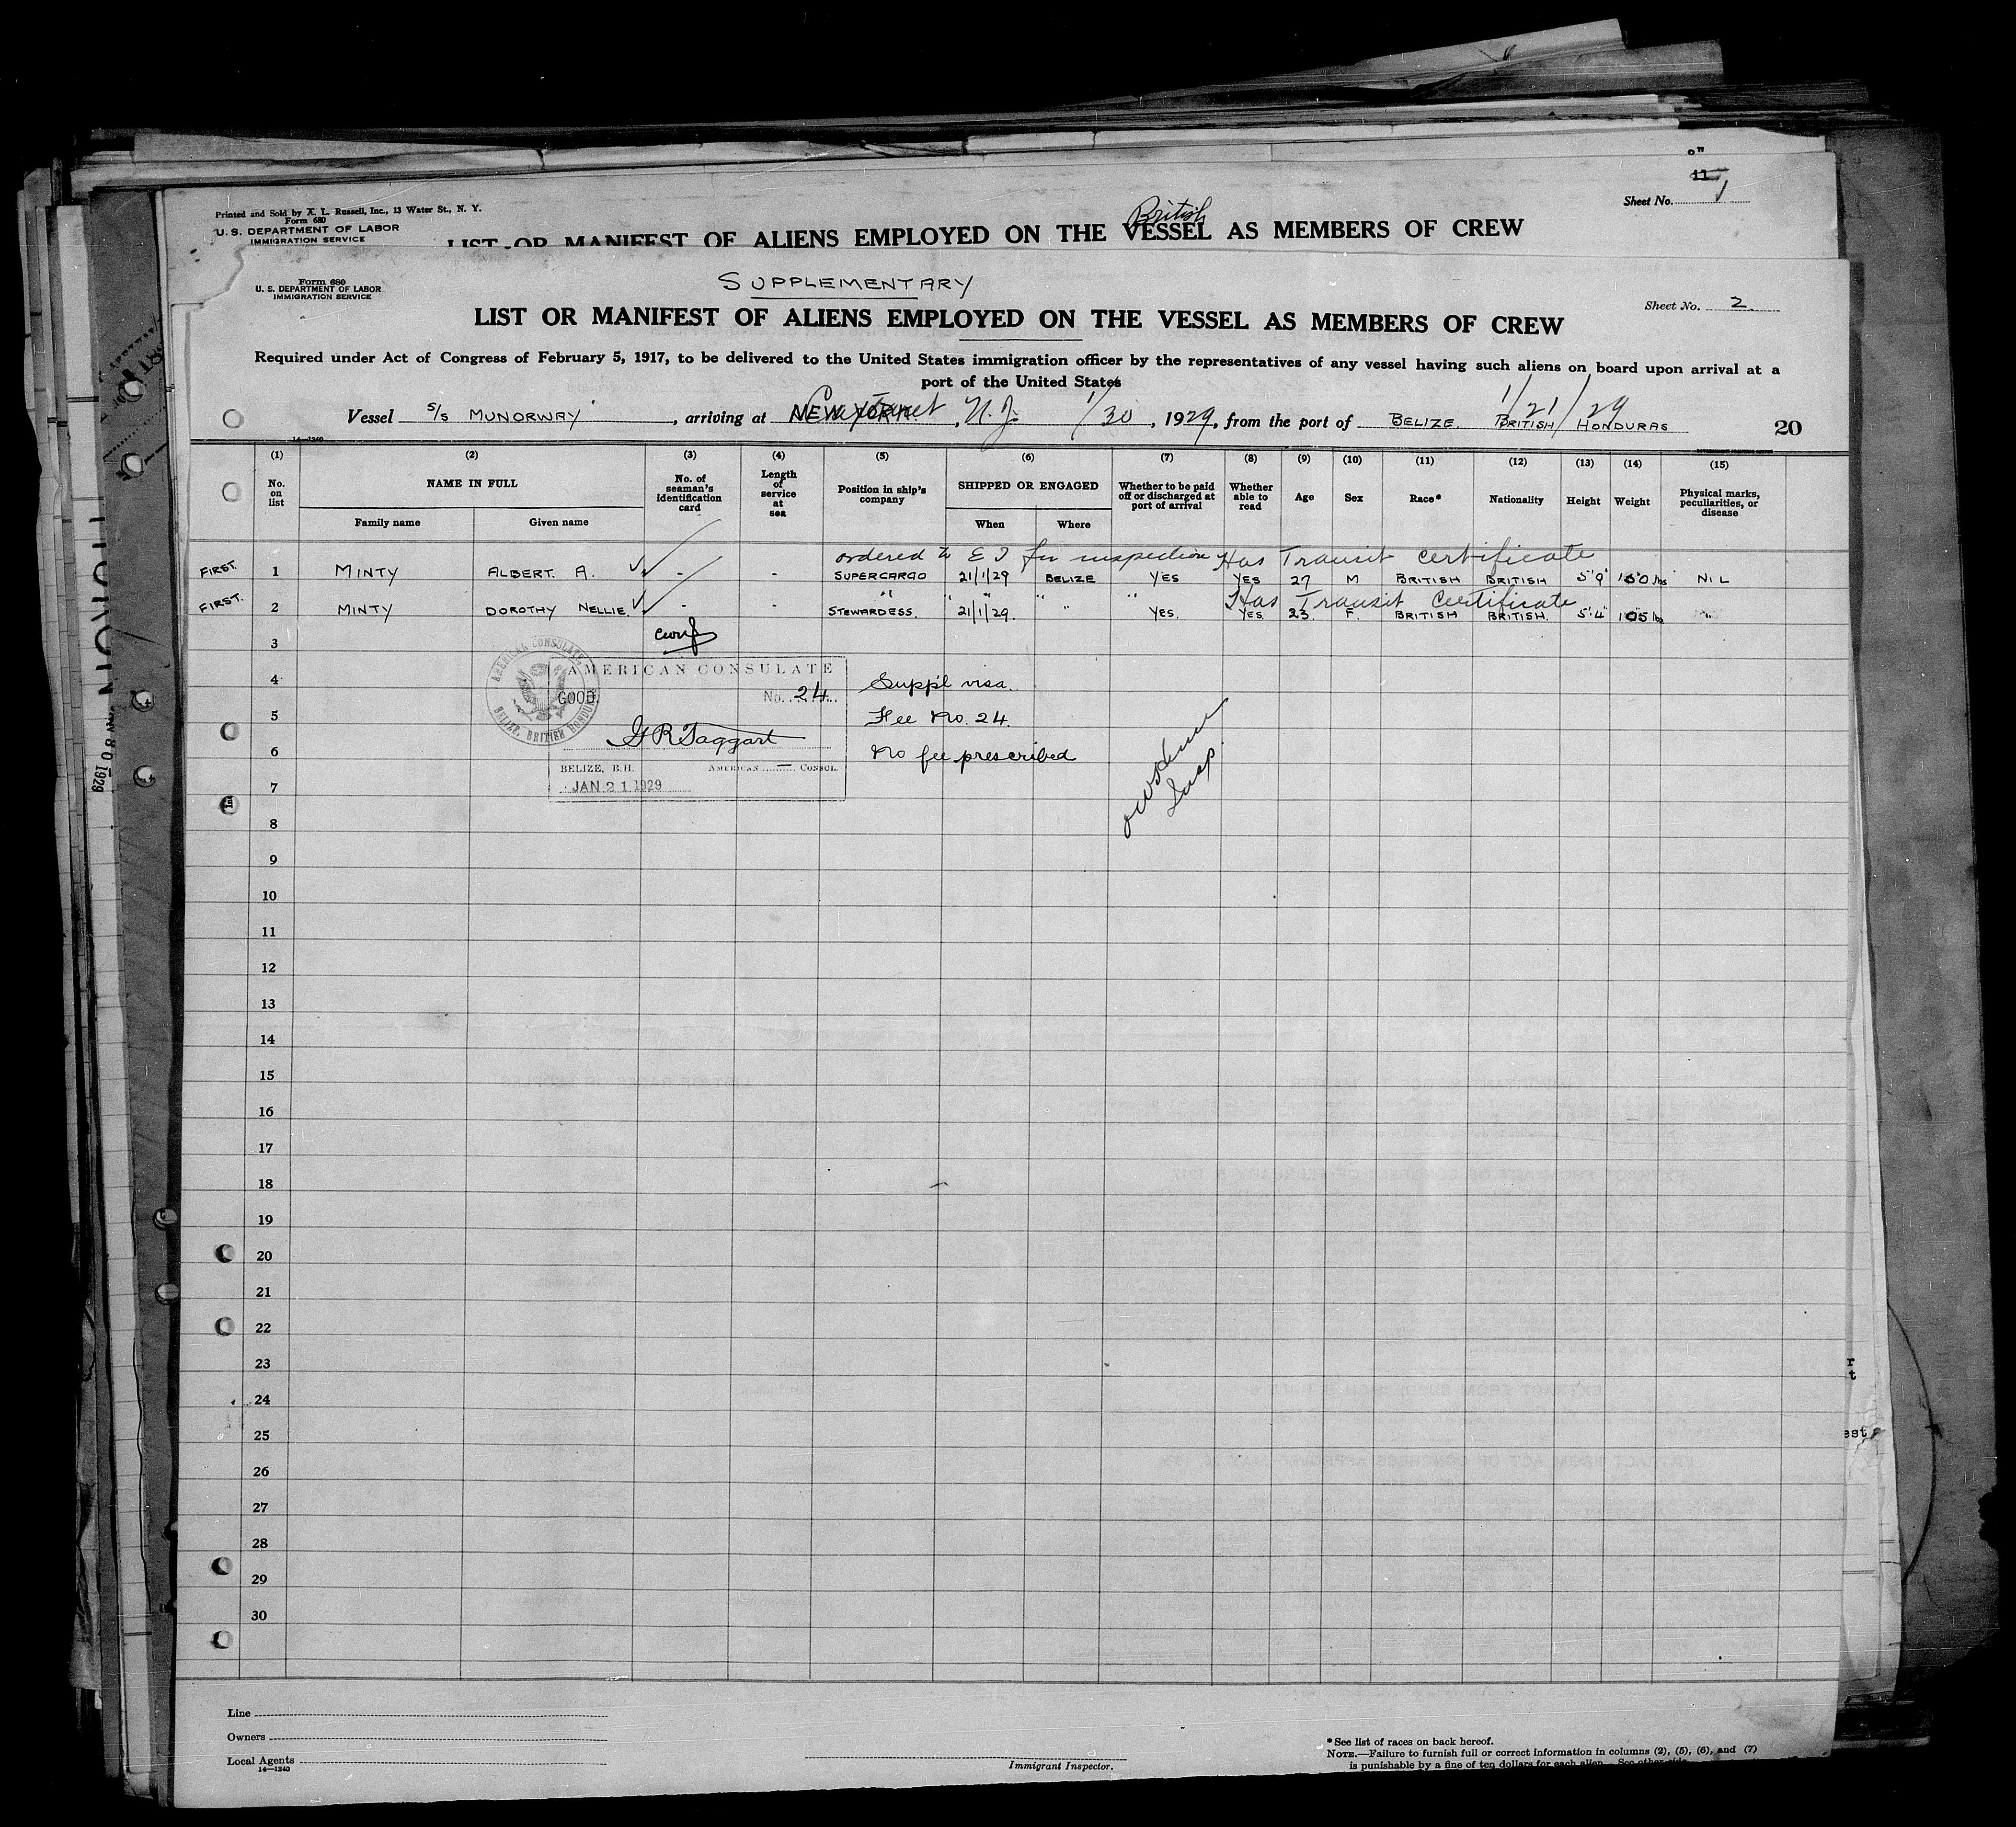 o"
11 1
Sheet No.
Printed and Sold by A. L. Russell, Inc., 13 Water St., N. Y.
Form 680
U. S. DEPARTMENT OF LABOR
IMMIGRATION SERVICE
British
LIST OR MANIFEST OF ALIENS EMPLOYED ON THE VESSEL AS MEMBERS OF CREW
Form 680
U. S. DEPARTMENT OF LABOR
IMMIGRATION SERVICE
SUPPLEMENTARY
Sheet No. 2
LIST OR MANIFEST OF ALIENS EMPLOYED ON THE VESSEL AS MEMBERS OF CREW
Required under Act of Congress of February 5, 1917, to be delivered to the United States immigration officer by the representatives of any vessel having such aliens on board upon arrival at a
port of the United States
Vessel S/S MUNORWAY, arriving at NEW YORK Carteret, N.J. 1/30, 1929, from the port of BELIZE. BRITISH HONDURAS 1/21/29
20
14—1240
(1) (2) (3) (4) (5) (6) (7) (8) (9) (10) (11) (12) (13) (14) (15)
No. on list
NAME IN FULL
Family name
Given name
No. of seaman's identification card
Length of service at sea
Position in ship's company
SHIPPED OR ENGAGED
When
Where
Whether to be paid off or discharged at port of arrival
Whether able to read
Age
Sex
Race*
Nationality
Height
Weight
Physical marks, peculiarities, or disease
ordered to E I for inspection Has Transit Certificate
FIRST. 1 MINTY ALBERT. A. - - SUPERCARGO 21/1/29 BELIZE YES YES 27 M BRITISH BRITISH 5'9" 150 lbs NIL
Has Transit Certificate
FIRST. 2 MINTY DOROTHY NELLIE. - - STEWARDESS. 21/1/29. " YES. YES. 23. F. BRITISH BRITISH. 5'4" 105 lbs "
3
AMERICAN CONSULATE,
BELIZE, BRITISH HONDURAS
AMERICAN CONSULATE
4
GOOD. No. 24
Suppl visa.
5
Fee No. 24.
G R Taggart
6
No fee prescribed
BELIZE, B.H. AMERICAN — CONSUL.
7
JAN 21 1929
Insp.
8
9
10
11
12
13
14
15
16
17
18
19
20
21
22
23
24
25
26
27
28
29
30
Line
Owners
Local Agents
14—1240
Immigrant Inspector.
*See list of races on back hereof.
NOTE.—Failure to furnish full or correct information in columns (2), (5), (6), and (7)
is punishable by a fine of ten dollars for each alien. See other side.